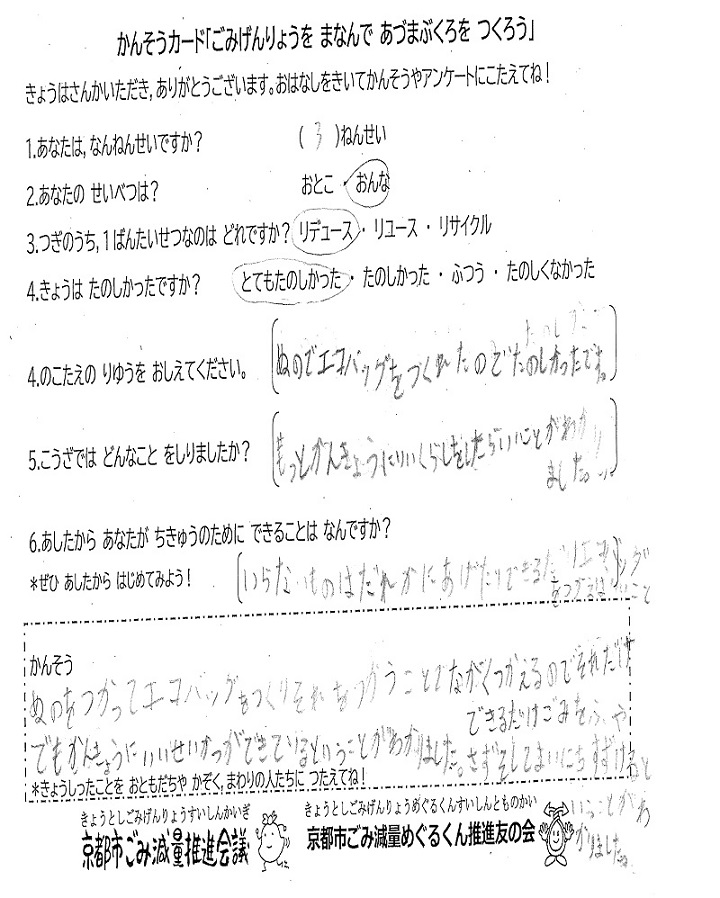 かんそうカード「ごみげんりょうを まなんで あづまぶくろを つくろう」
きょうはさんかいただき,ありがとうございます。おはなしをきいてかんそうやアンケートにこたえてね!
1.あなたは,なんねんせいですか? ( 3 )ねんせい
2.あなたの せいべつは? おとこ ・ おんな
3.つぎのうち,1ばんたいせつなのは どれですか? リデュース ・ リユース ・ リサイクル
4.きょうは たのしかったですか? とてもたのしかった ・ たのしかった ・ ふつう ・ たのしくなかった
4.のこたえの りゆうを おしえてください。 ぬのでエコバッグをつくれたのでたのしかったです。
5.こうざでは どんなこと をしりましたか? もっとかんきょうにいいくらしをしたらいいことがわかり
ました。
6.あしたから あなたが ちきゅうのために できることは なんですか?
*ぜひ あしたから はじめてみよう! いらないものはだれかにあげたりできるだ
かんそう
ぬのをつかってエコバッグをつくりそれをつかうことでながくつかえるのでそれだけ
でもかんきょうにいいせいかつができているということがわかりました。
できるだけごみをふや
さずそしてまいにち
ることがわ
かりました。
*きょうしったことを おともだちや かぞく,まわりの人たちに つたえてね!
きょうとしごみげんりょうすいしんかいぎ
京都市ごみ減量推進会議
きょうとしごみげんりょうめぐるくんすいしんとものかい
京都市ごみ減量めぐるくん推進友の会